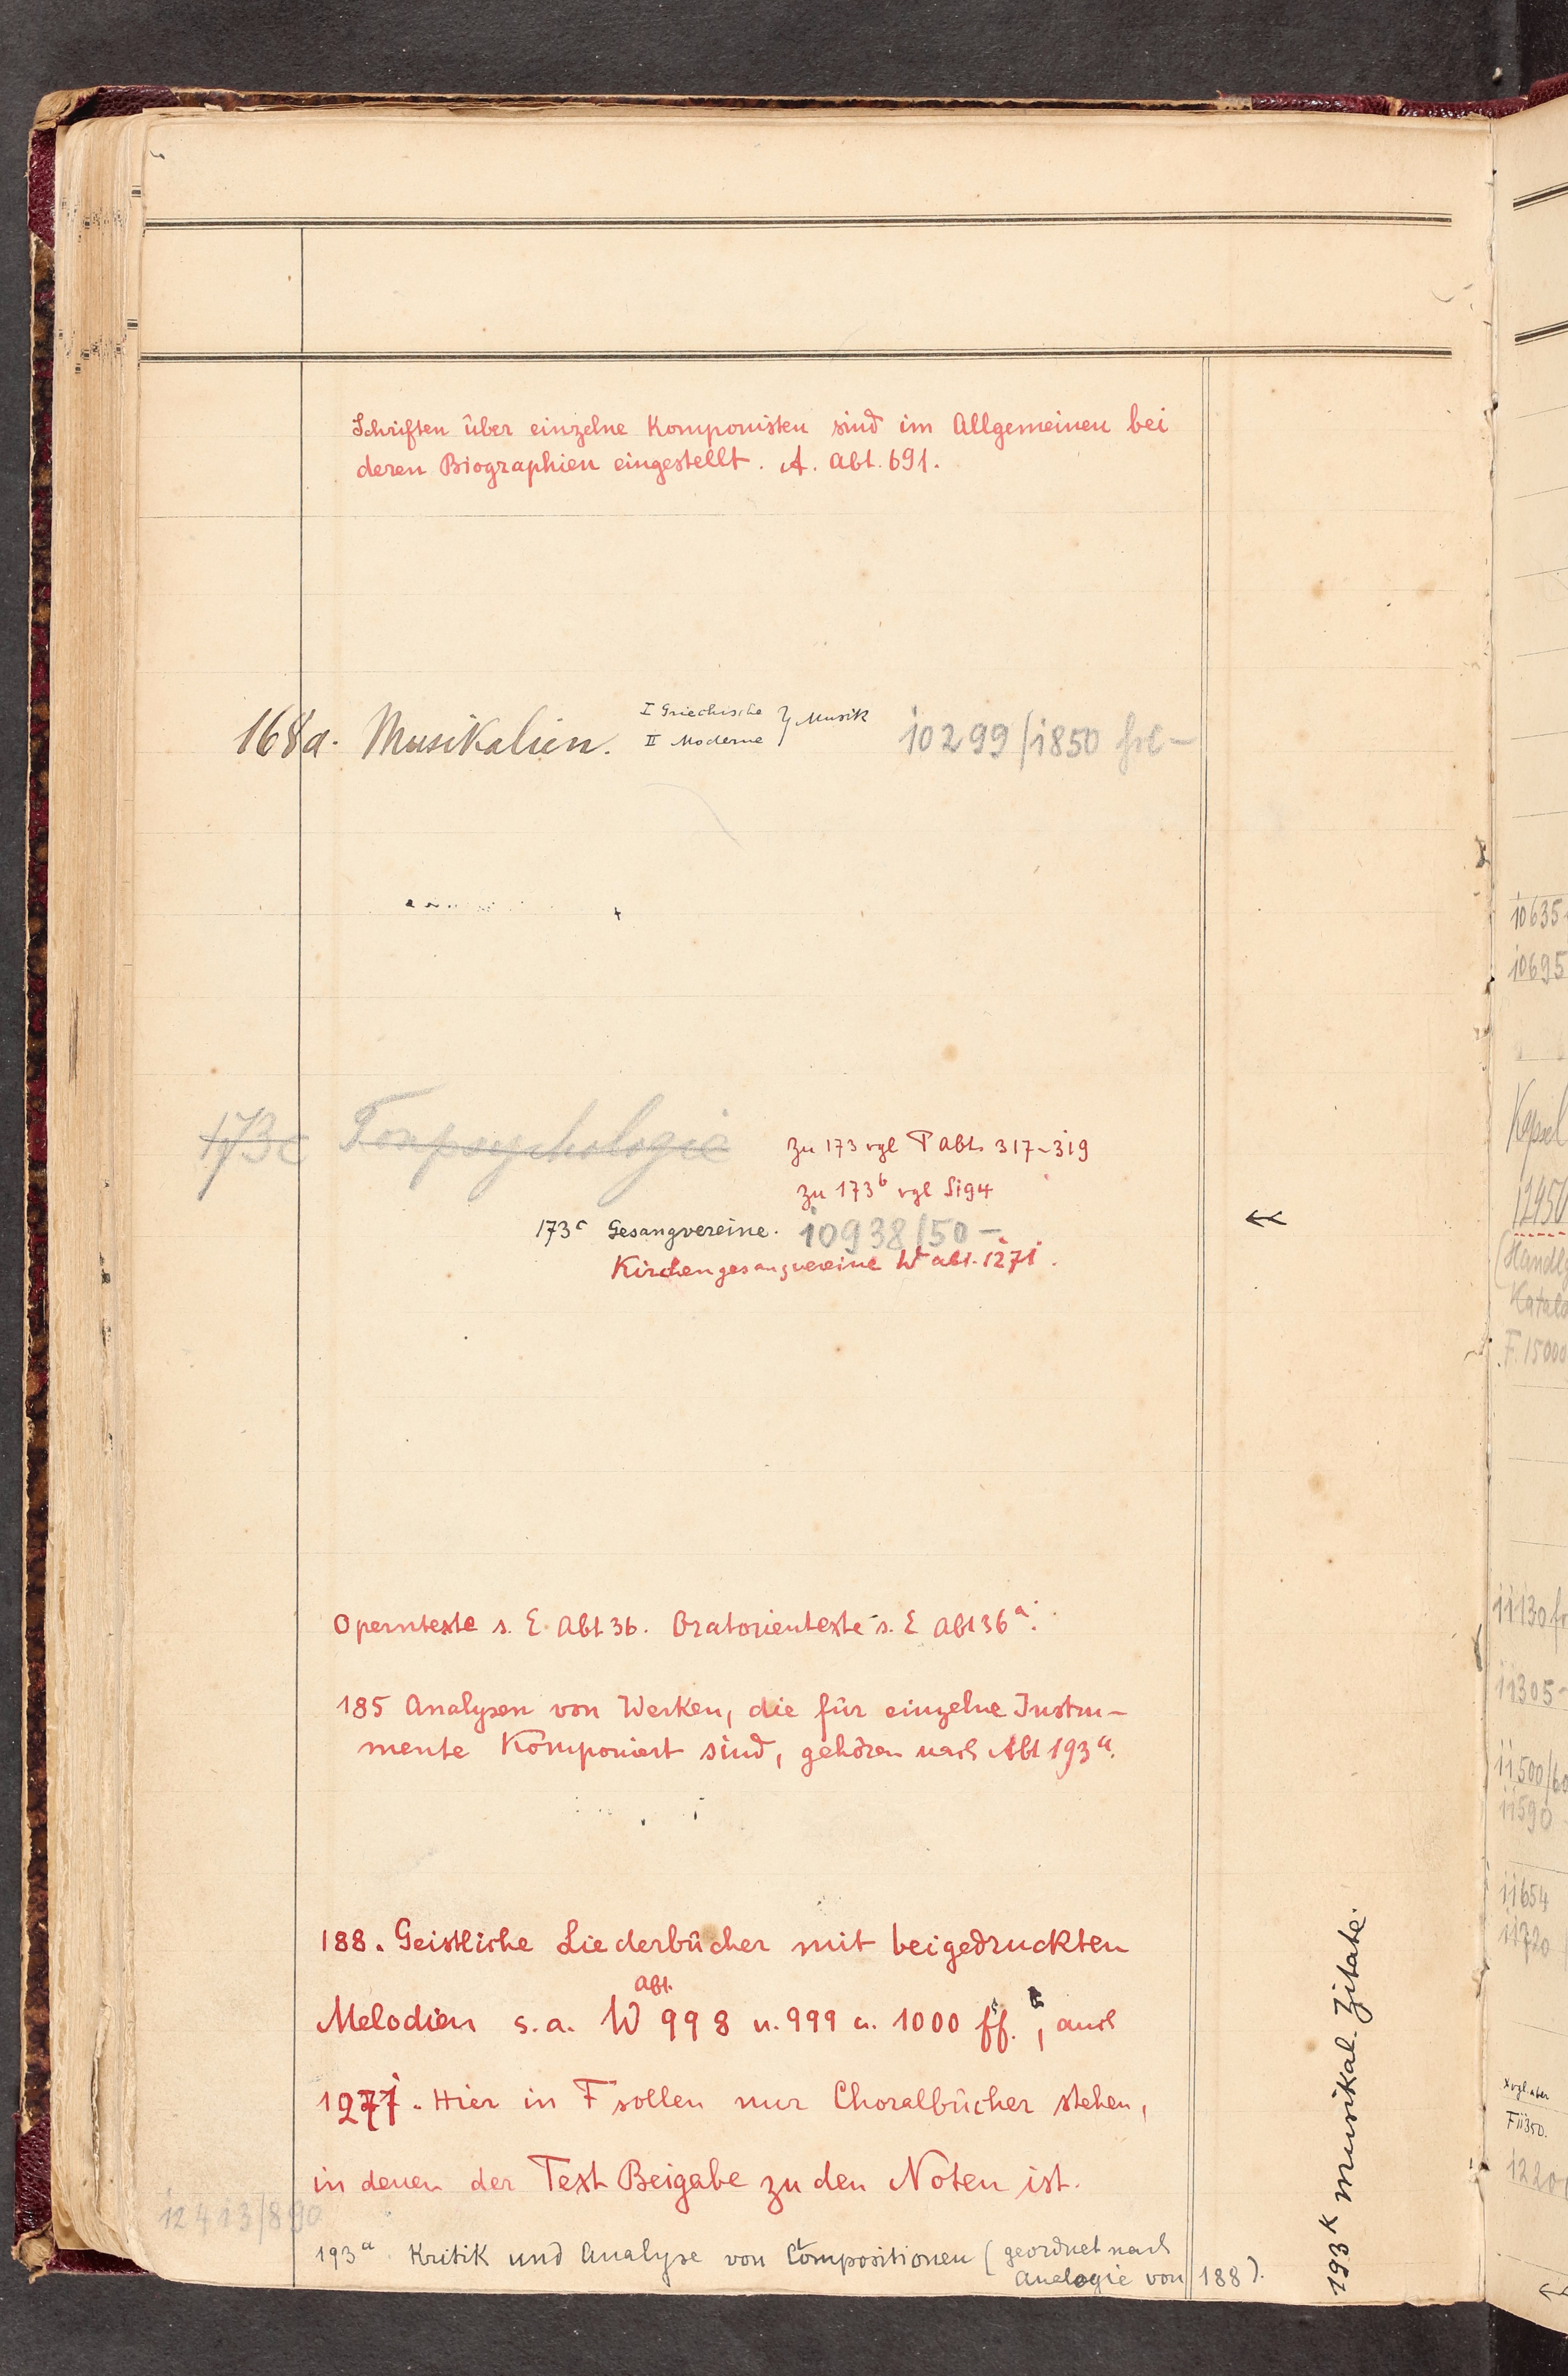 Schriften über einzelne Komponisten sind im Allgemeinen bei
deren Biographien eingestellt. A. Abt. 691.
168a. Musikalien. I Griechische } Musik 10299/1850 fre-
II Moderne
173c Tonpsychologie
zu 173 vgl P Abt. 317-319
zu 173b vgl S194
173c Gesangvereine. 10938/50 -
Kirchengesangvereine W Abt. 1271.
Operntexte s. E Abt 36. Oratorientexte s. E Abt 36a.
185 Analysen von Werken, die für einzelne Instru-
mente Komponiert sind, gehören nach Abt 193a.
188. Geistliche Liederbücher mit beigedruckten
Melodien s. a. W Abt. 998 u. 999 u. 1000 ff., auch
1271. Hier in F sollen nur Choralbücher stehen,
in denen der Text Beigabe zu den Noten ist.
12413/890
193a Kritik und Analyse von Compositionen (geordnet nach
Analogie von 188).
193K Musikal. Zitate.
10635
10695
Kapsel
12950
(Handlg
Katalo
F. 15000
11130 fr
11305-
11500/60
11590
11654
11720
x vgl. aber
F11350.
1220